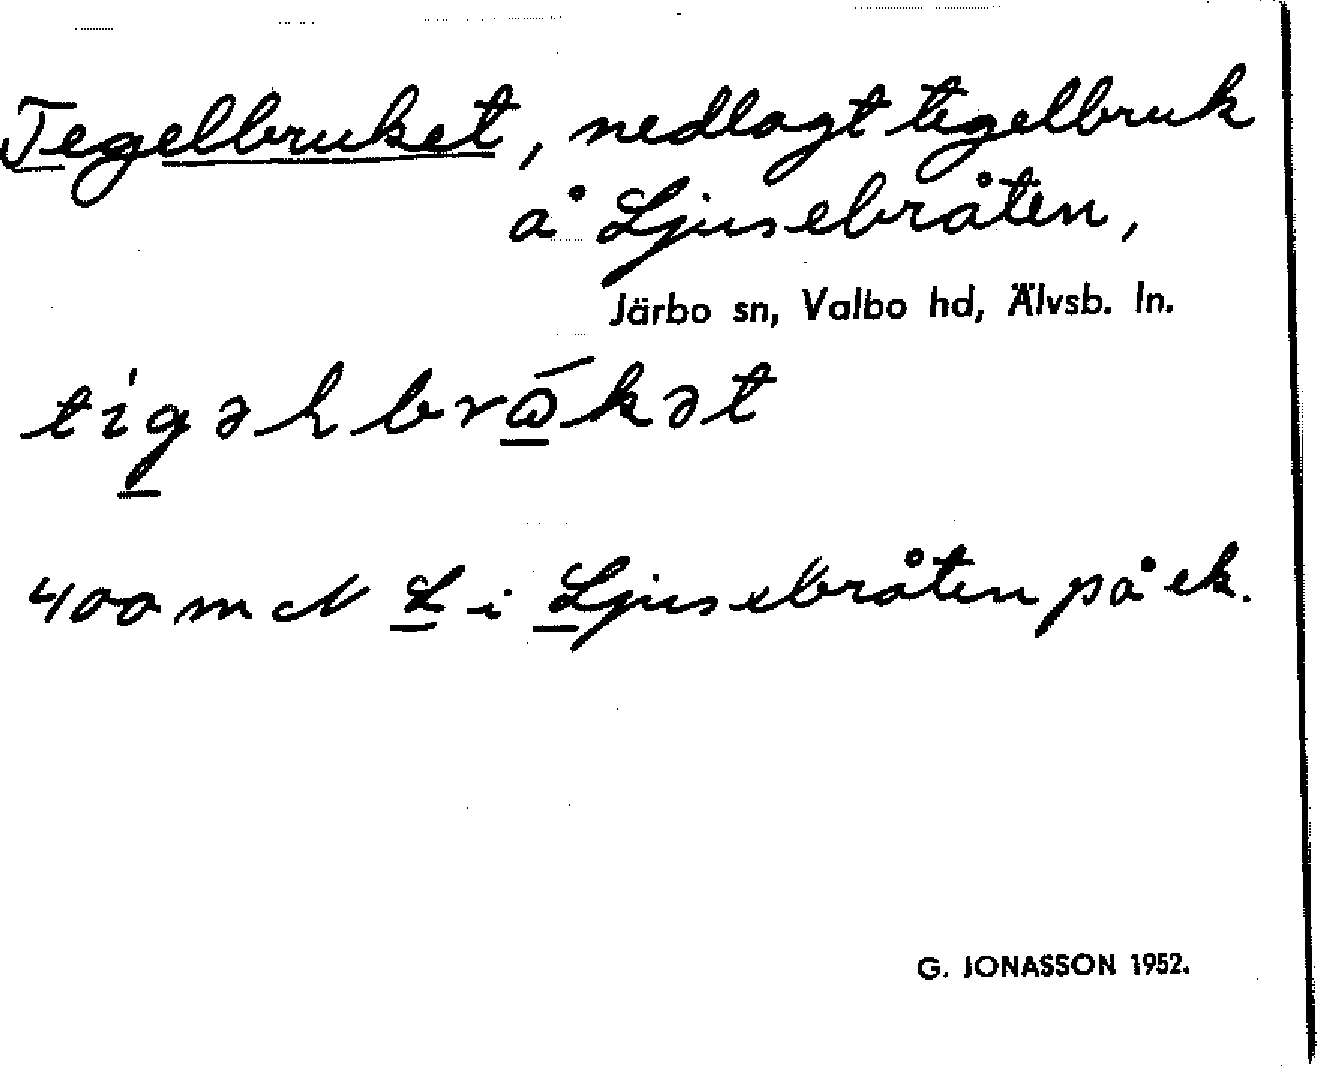 Tegelbruket, nedlagt tegelbruk
å Ljusebråten,
Järbo sn, Valbo hd, Älvsb. ln.
400 m N L i Ljusebråten på ek.
G. JONASSON 1952.